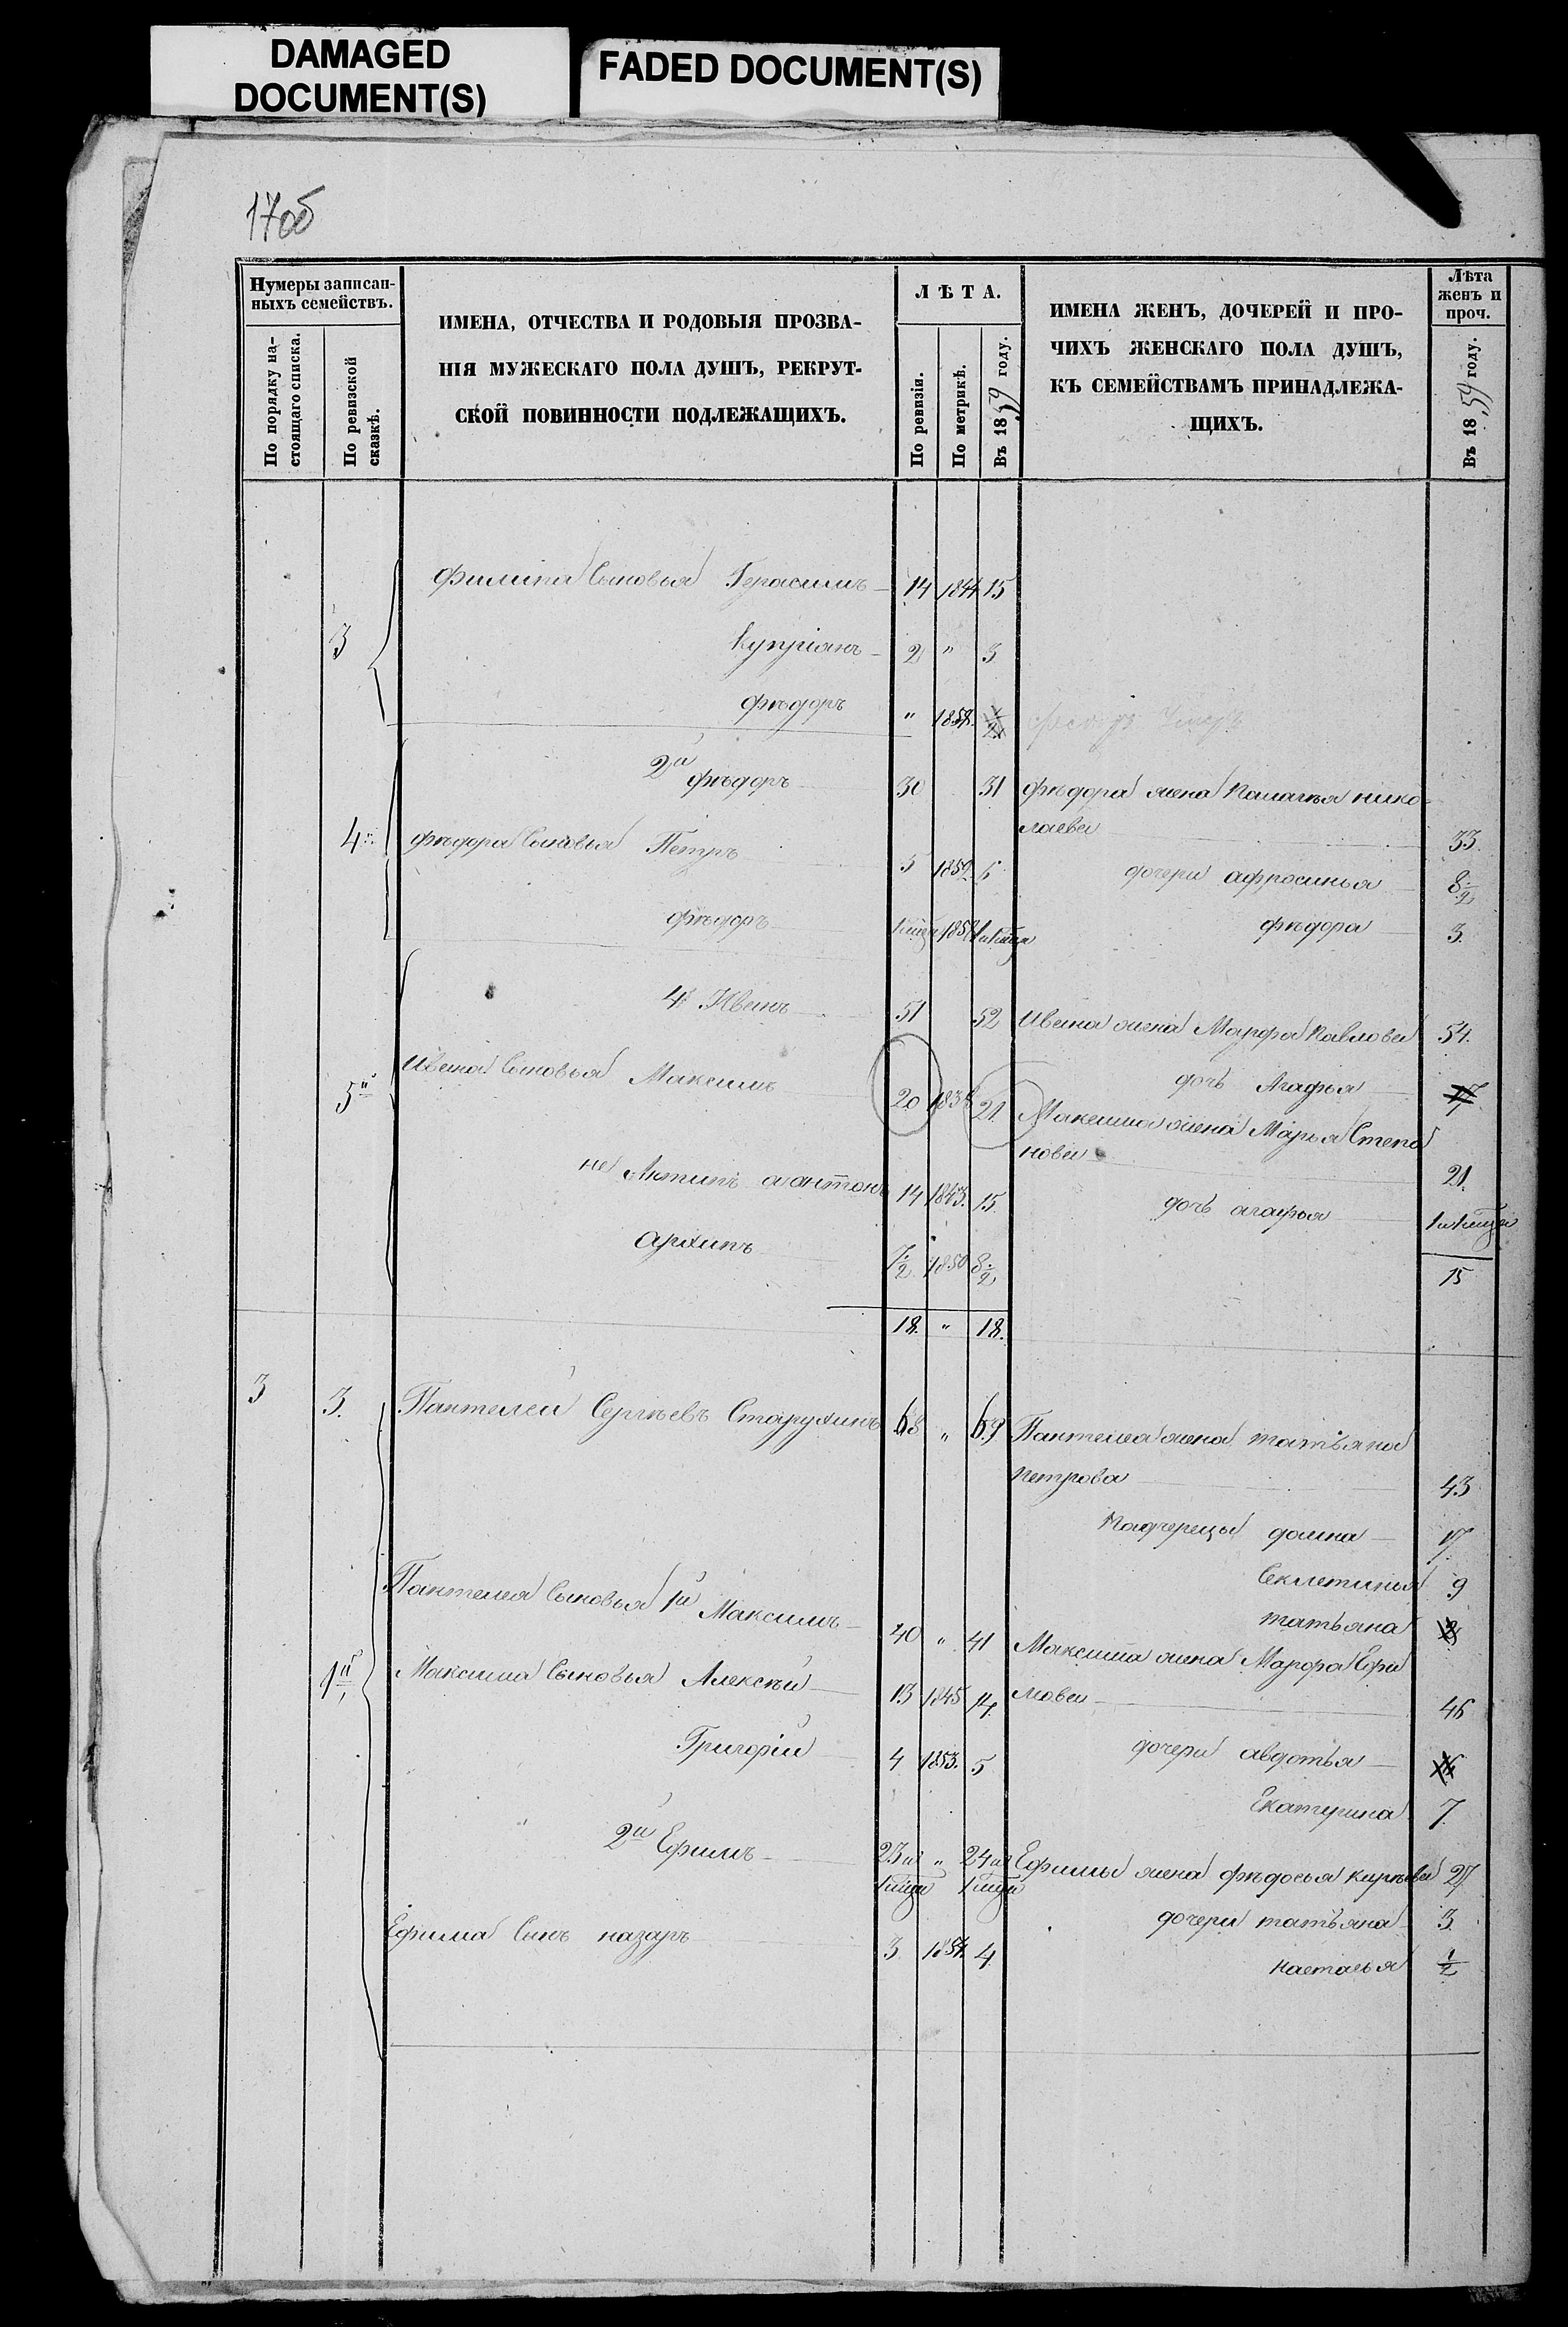 DAMAGED
DOCUMENT(S)
FADED DOCUMENT(S)
17об
Нумеры записан-
ныхъ семействъ.
По порядку на-
стоящаго списка.
По ревизской
сказкѣ.
ИМЕНА, ОТЧЕСТВА И РОДОВЫЯ ПРОЗВА-
НІЯ МУЖЕСКАГО ПОЛА ДУШЪ, РЕКРУТ-
СКОЙ ПОВИННОСТИ ПОДЛЕЖАЩИХЪ.
ЛѢТА.
По ревизіи.
По метрикѣ.
Въ 1859 году.
ИМЕНА ЖЕНЪ, ДОЧЕРЕЙ И ПРО-
ЧИХЪ ЖЕНСКАГО ПОЛА ДУШЪ,
КЪ СЕМЕЙСТВАМЪ ПРИНАДЛЕЖА-
ЩИХЪ.
Лѣта
женъ и
проч.
Въ 1859 году.
Филипа Сыновья Герасимъ 14 1844 15
3
Купріянъ 2 " 3
Фѣдоръ " 1858. 1/2
2й Фѣдоръ 30 31 Фѣдора жена Паланья нико-
лаева 33.
4й Фѣдора Сыновья Петръ 5 1850 6 дочери афросинья 8 1/2
Фѣдоръ 1858 фѣдора 3.
4й Иванъ 51 52 Ивана жена Марфа Павлова 54.
5й Ивана Сыновья Максимъ 20 1838 21. дочь Агафья 17
Максима жена Марья Степа
нова 21.
не Антипъ а антонъ 14 1843. 15. дочь агафья
архипъ 7 1/2 1850 8 1/2
15
18. " 18.
3 3. Пантелей Сергѣевъ Старухинъ 68 " 69 Пантелея жена татьяна
петрова 43
Падчерецы домна 17.
Секлетинья 9
татьяна
Пантелея Сыновья 1й Максимъ 40 " 41 Максима жена Марфа Ефи
мова 46
1й Максима Сыновья Алексѣй 13 1845 14.
Григорій 4 1853. 5 дочери авдотья
Екатерина 7.
2й Ефимъ 23 и " 24 и Ефимы жена фѣдосья кирѣева 27
Ефима Сынъ назаръ 3. 1854. 4. дочери татьяна 3.
настасья 1/2